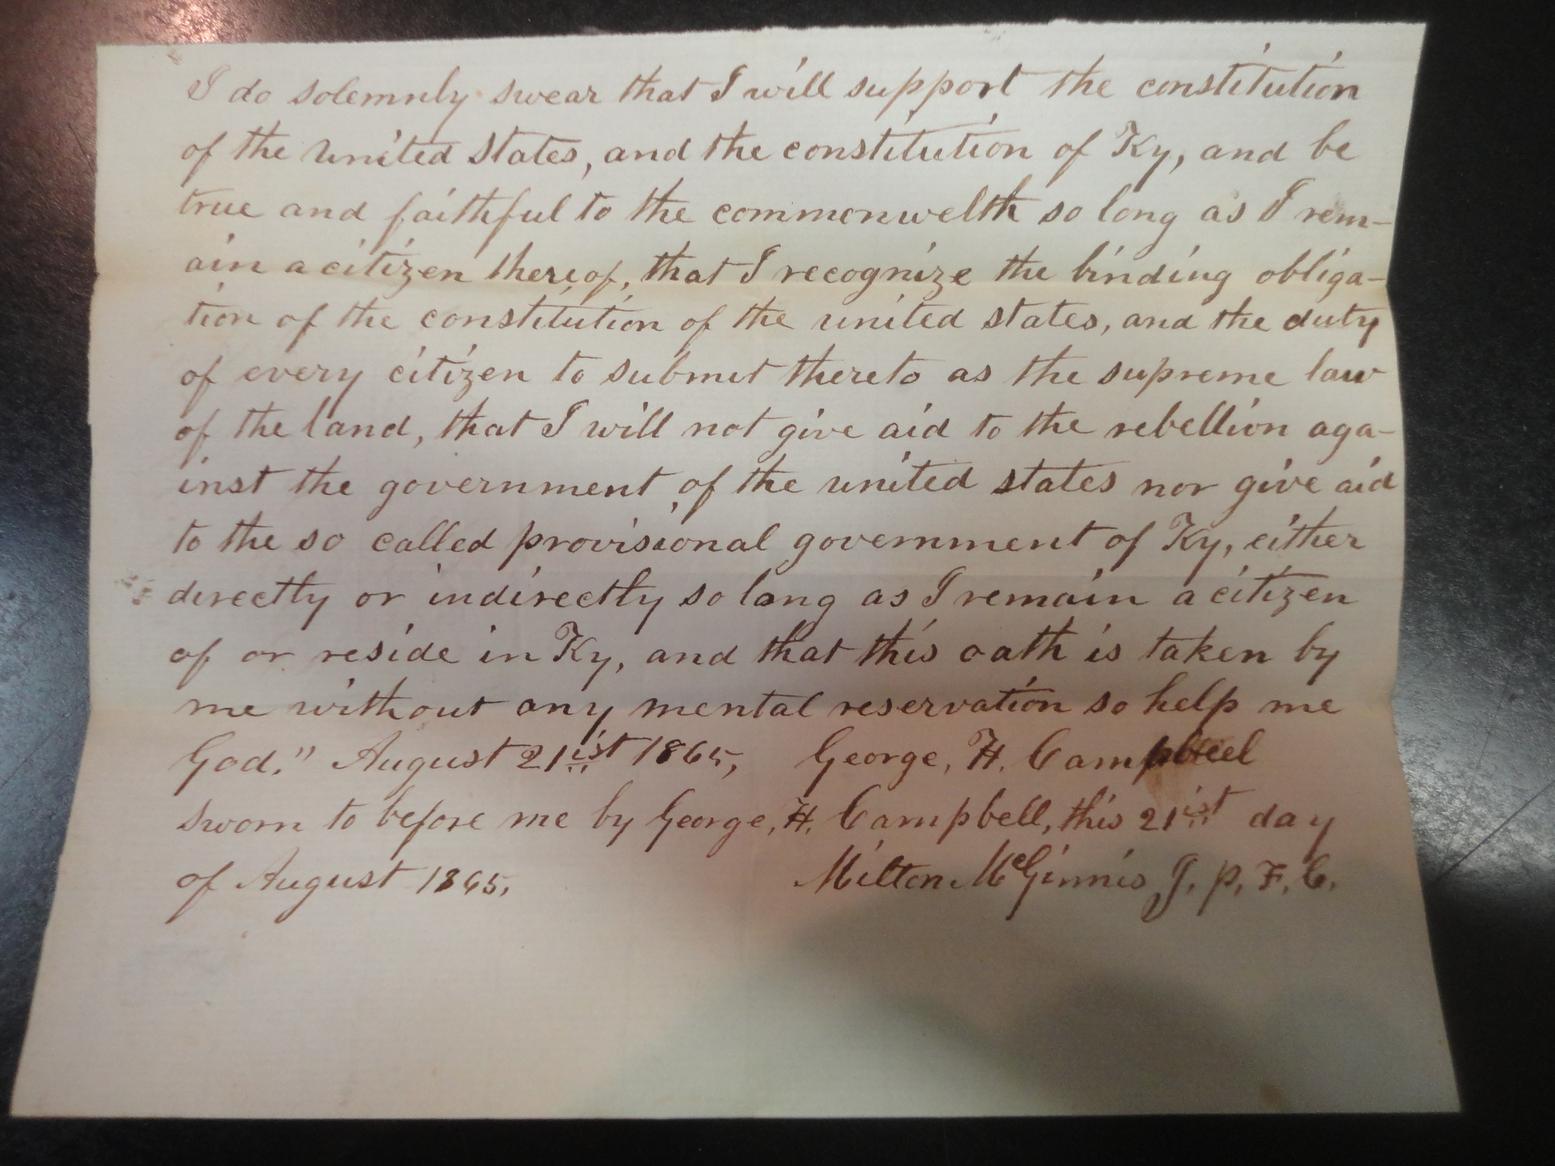 I do solemnly swear that I will support the constitution
of the united states, and the constitution of Ky, and be
true and faithful to the commonwelth so long as I rem-
ain a citizen thereof, that I recognize the binding obliga-
tion of the constitution of the united states, and the duty
of every citizen to submit thereto as the supreme law
of the land, that I will not give aid to the rebellion aga-
inst the government of the united states nor give aid
to the so called provisional government of Ky, either
directly or indirectly so long as I remain a citizen
of or reside in Ky, and that this oath is taken by
me without any mental reservation so help me
God." August 21ist 1865, George, H. Campbell
sworn to before me by George, H. Campbell, this 21ist day
of August 1865. Milton McGinnis J. P. F. C.